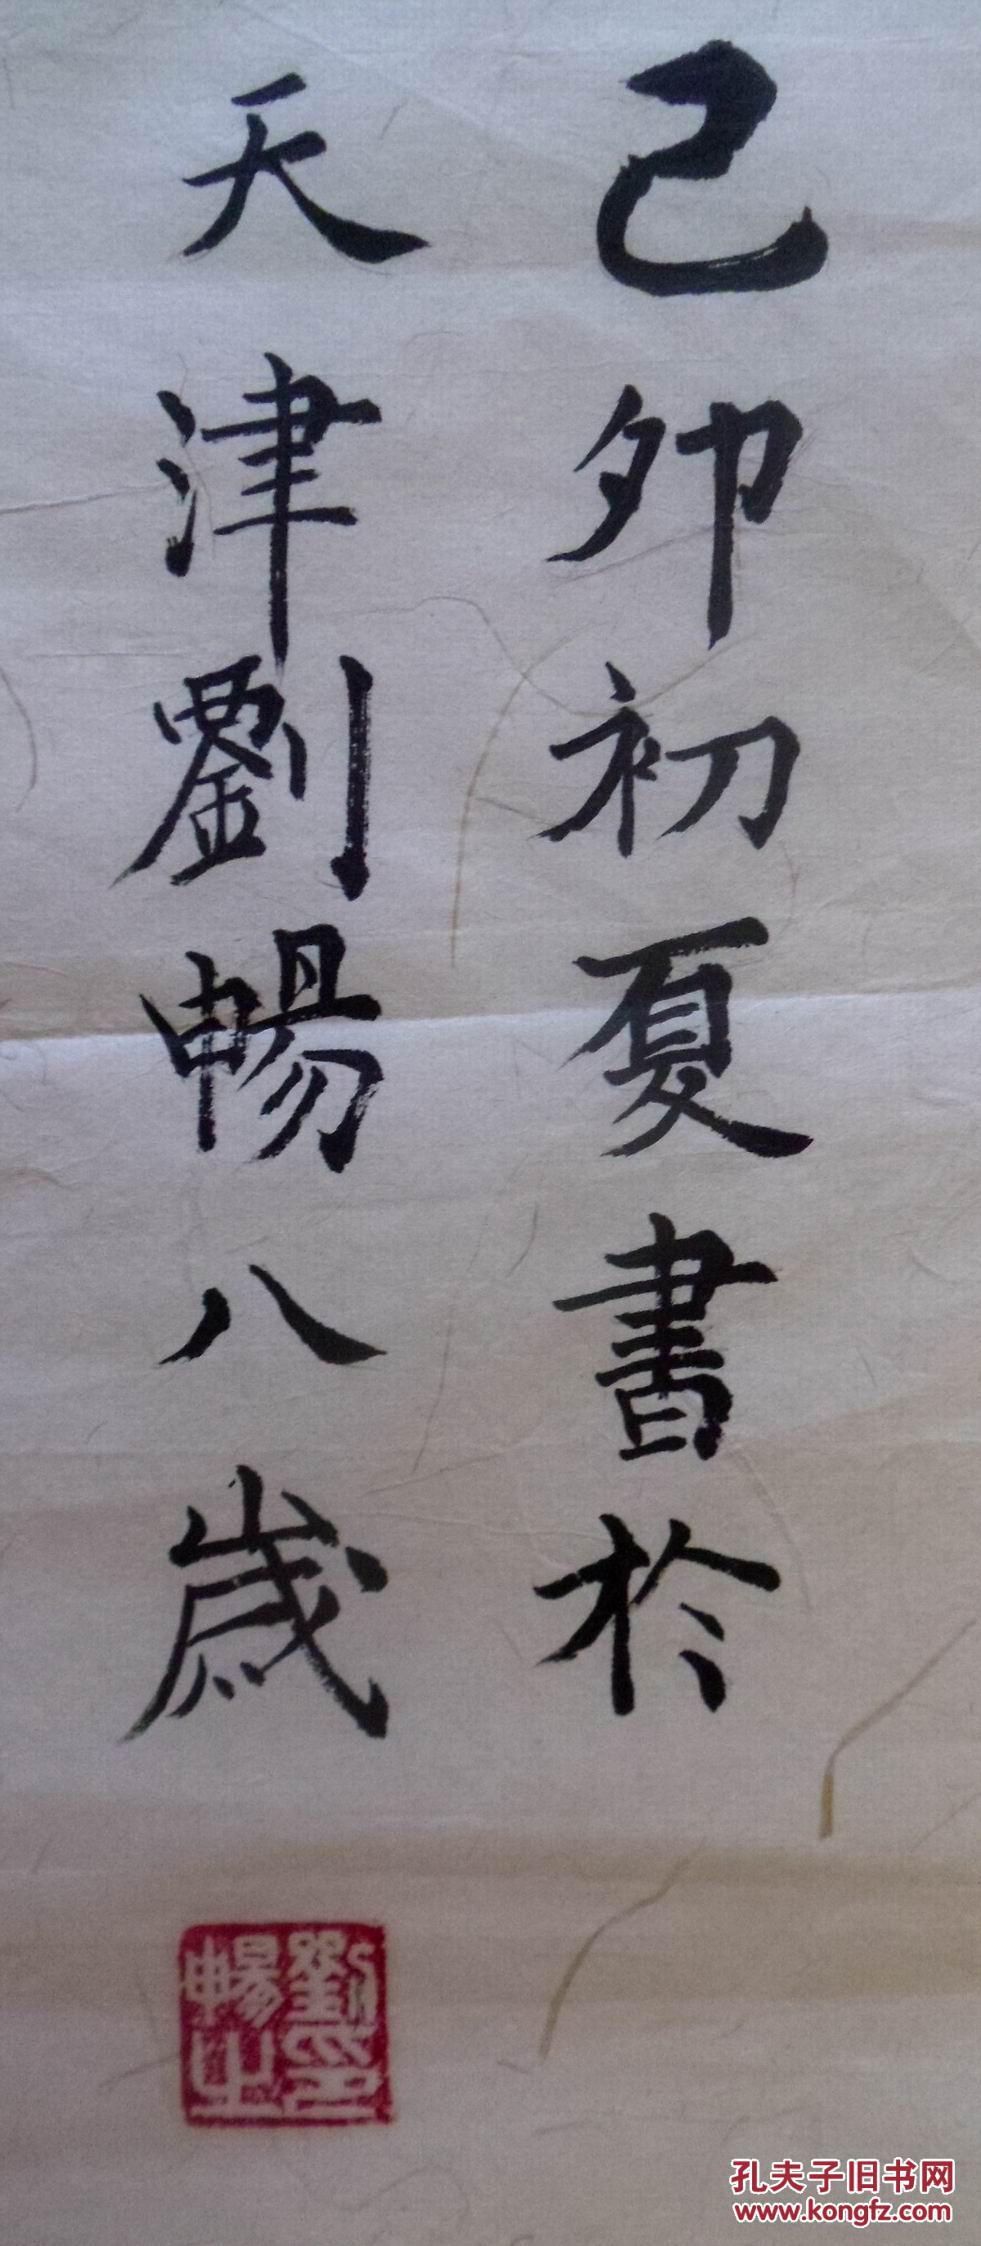 己卯初夏書於
天津劉暢八歲
劉暢之印
孔夫子旧书网
www.kongfz.com